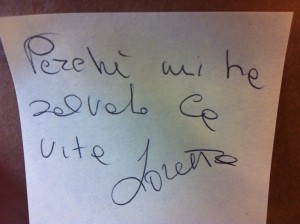 Perchè mi ha
salvato la
vita Loretta